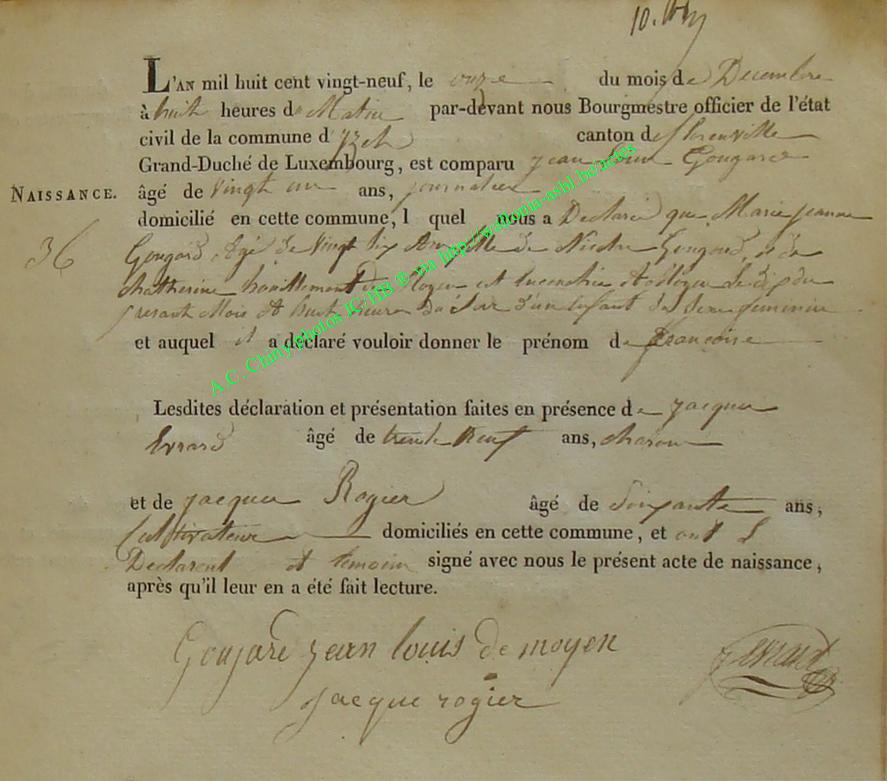 L'AN mil huit cent vingt-neuf, le onze du mois de Décembre
à huit heures d Matin par-devant nous Bourgmestre officier de l'état
civil de la commune d'Izel canton de florenville
Grand-Duché de Luxembourg, est comparu jean Louis Gougard
NAISSANCE. âgé de vingt un ans, journalier
domicilié en cette commune, l quel nous a Declaré que Marie jeanne
36 Gougard, Agé de vingt six Ans fille de Nicolas Gougard, et de
Chatherine houillemont de Moyen et
present Mois et huit heure Du Soir D'un Enfant Du Sexe feminin
et auquel il a déclaré vouloir donner le prénom de françoise
Lesdites déclaration et présentation faites en présence de jacque
Evrard âgé de trente Neuf ans, charon
et de jacque Rogier âgé de Soixante ans,
Cultivateur domiciliés en cette commune, et ont L
Declarent et temoin signé avec nous le présent acte de naissance,
après qu'il leur en a été fait lecture.
Goujard jean louis de moyen
J Evrard
jacque rogier
A.C. Chiny photos JG/HB ® via http://wallonia-asbl.be/actes